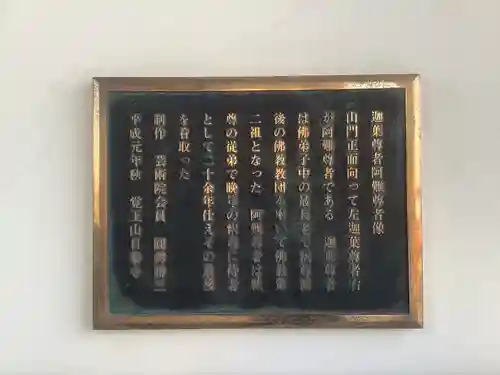 迦葉尊者阿難尊者像
山門正面向って左迦葉尊者右
が阿難尊者である 迦葉尊者
は佛弟子中の最長
後の佛教教団
二祖となった 阿難尊者は釈
尊の従弟で晩年の釈尊に侍者
として二十余年仕えその最後
を看取った
制作 芸術院会員 圓鍔勝三
平成元年秋 覚王山日泰寺